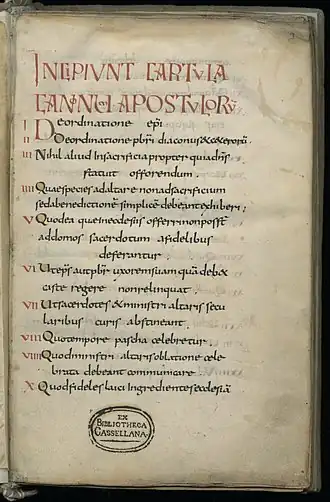 INCIPIUNT CAPITULA
CANONU APOSTULORU
I De ordinatione epi
II De ordinatione pbri diaconus & ceterorum
III Nihil aliud in sacrificia propter quod dns
statuit offorendum.
IIII Quae species ad altare non ad sacrificium
sed a benedictione simplice debeant exhiberi;
V Quod ea quae in eclesiis offerri non posst
ad domos sacerdotum a fidelibus
deferantur.
VI Ut eps aut pbr uxorem suam qua debet
caste regere non relinquat.
VII Ut sacerdotes & ministri altaris secu
laribus curis abstineant.
VIII Quo tempore pascha celebretur.
VIIII Quod ministri altaris oblatione cele
brata debeant communicare.
X Quod fideles laici ingredientes eclesia
EX
BIBLIOTHECA
CASSELLANA.